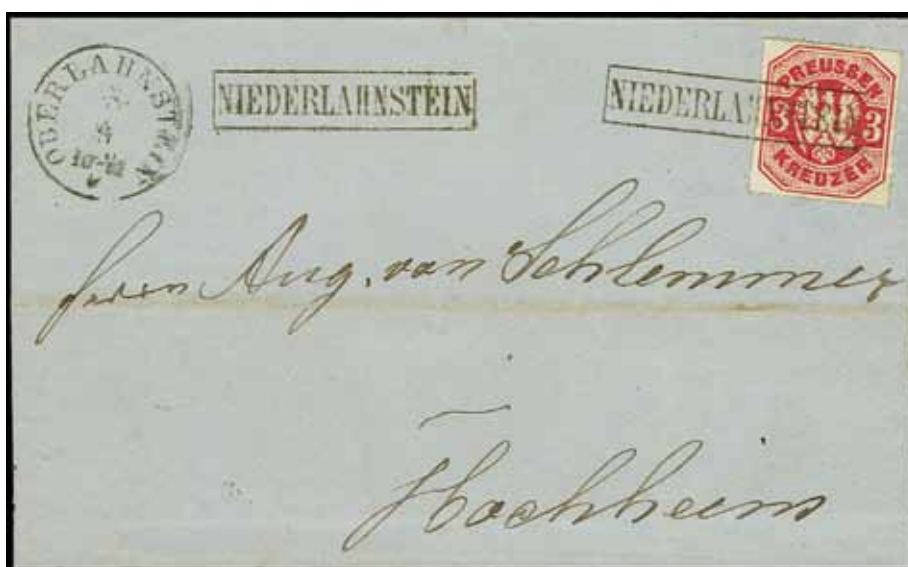 OBERLAHNSTEIN
NIEDERLAHNSTEIN
NIEDERLAHNSTEIN
PREUSSEN
3 3
KREUZER
Herrn Aug. van Schlemmer
Hochheim